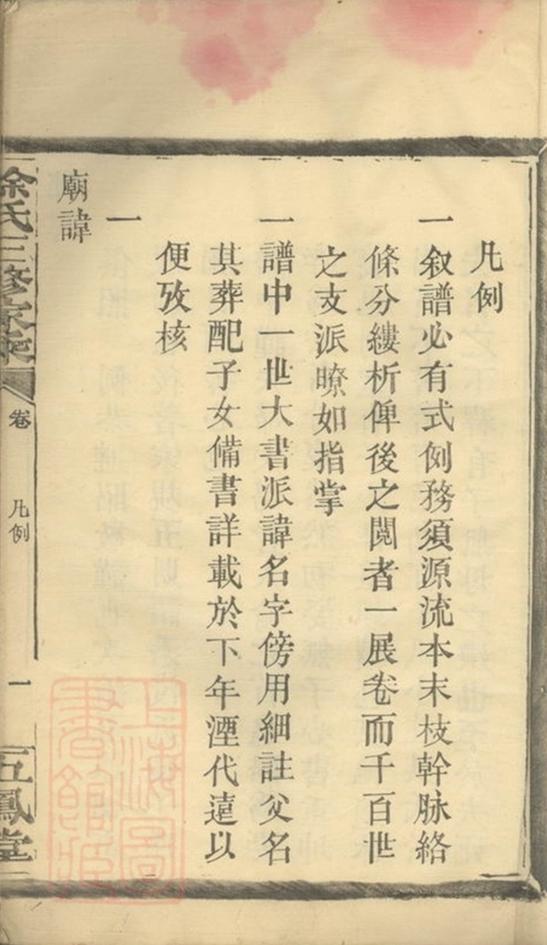 凡例
一叙譜必有式例務須源流本末枝幹脉絡
條分縷析俾後之閲者一展卷而千百世
之支派暸如指掌
一譜中一世大書派諱名字傍用細註父名
其葬配子女備書詳載於下年湮代遠以
便攷核
一
廟諱
徐氏三修家乘
卷
凡例
一
五鳳堂
上海圖書館藏